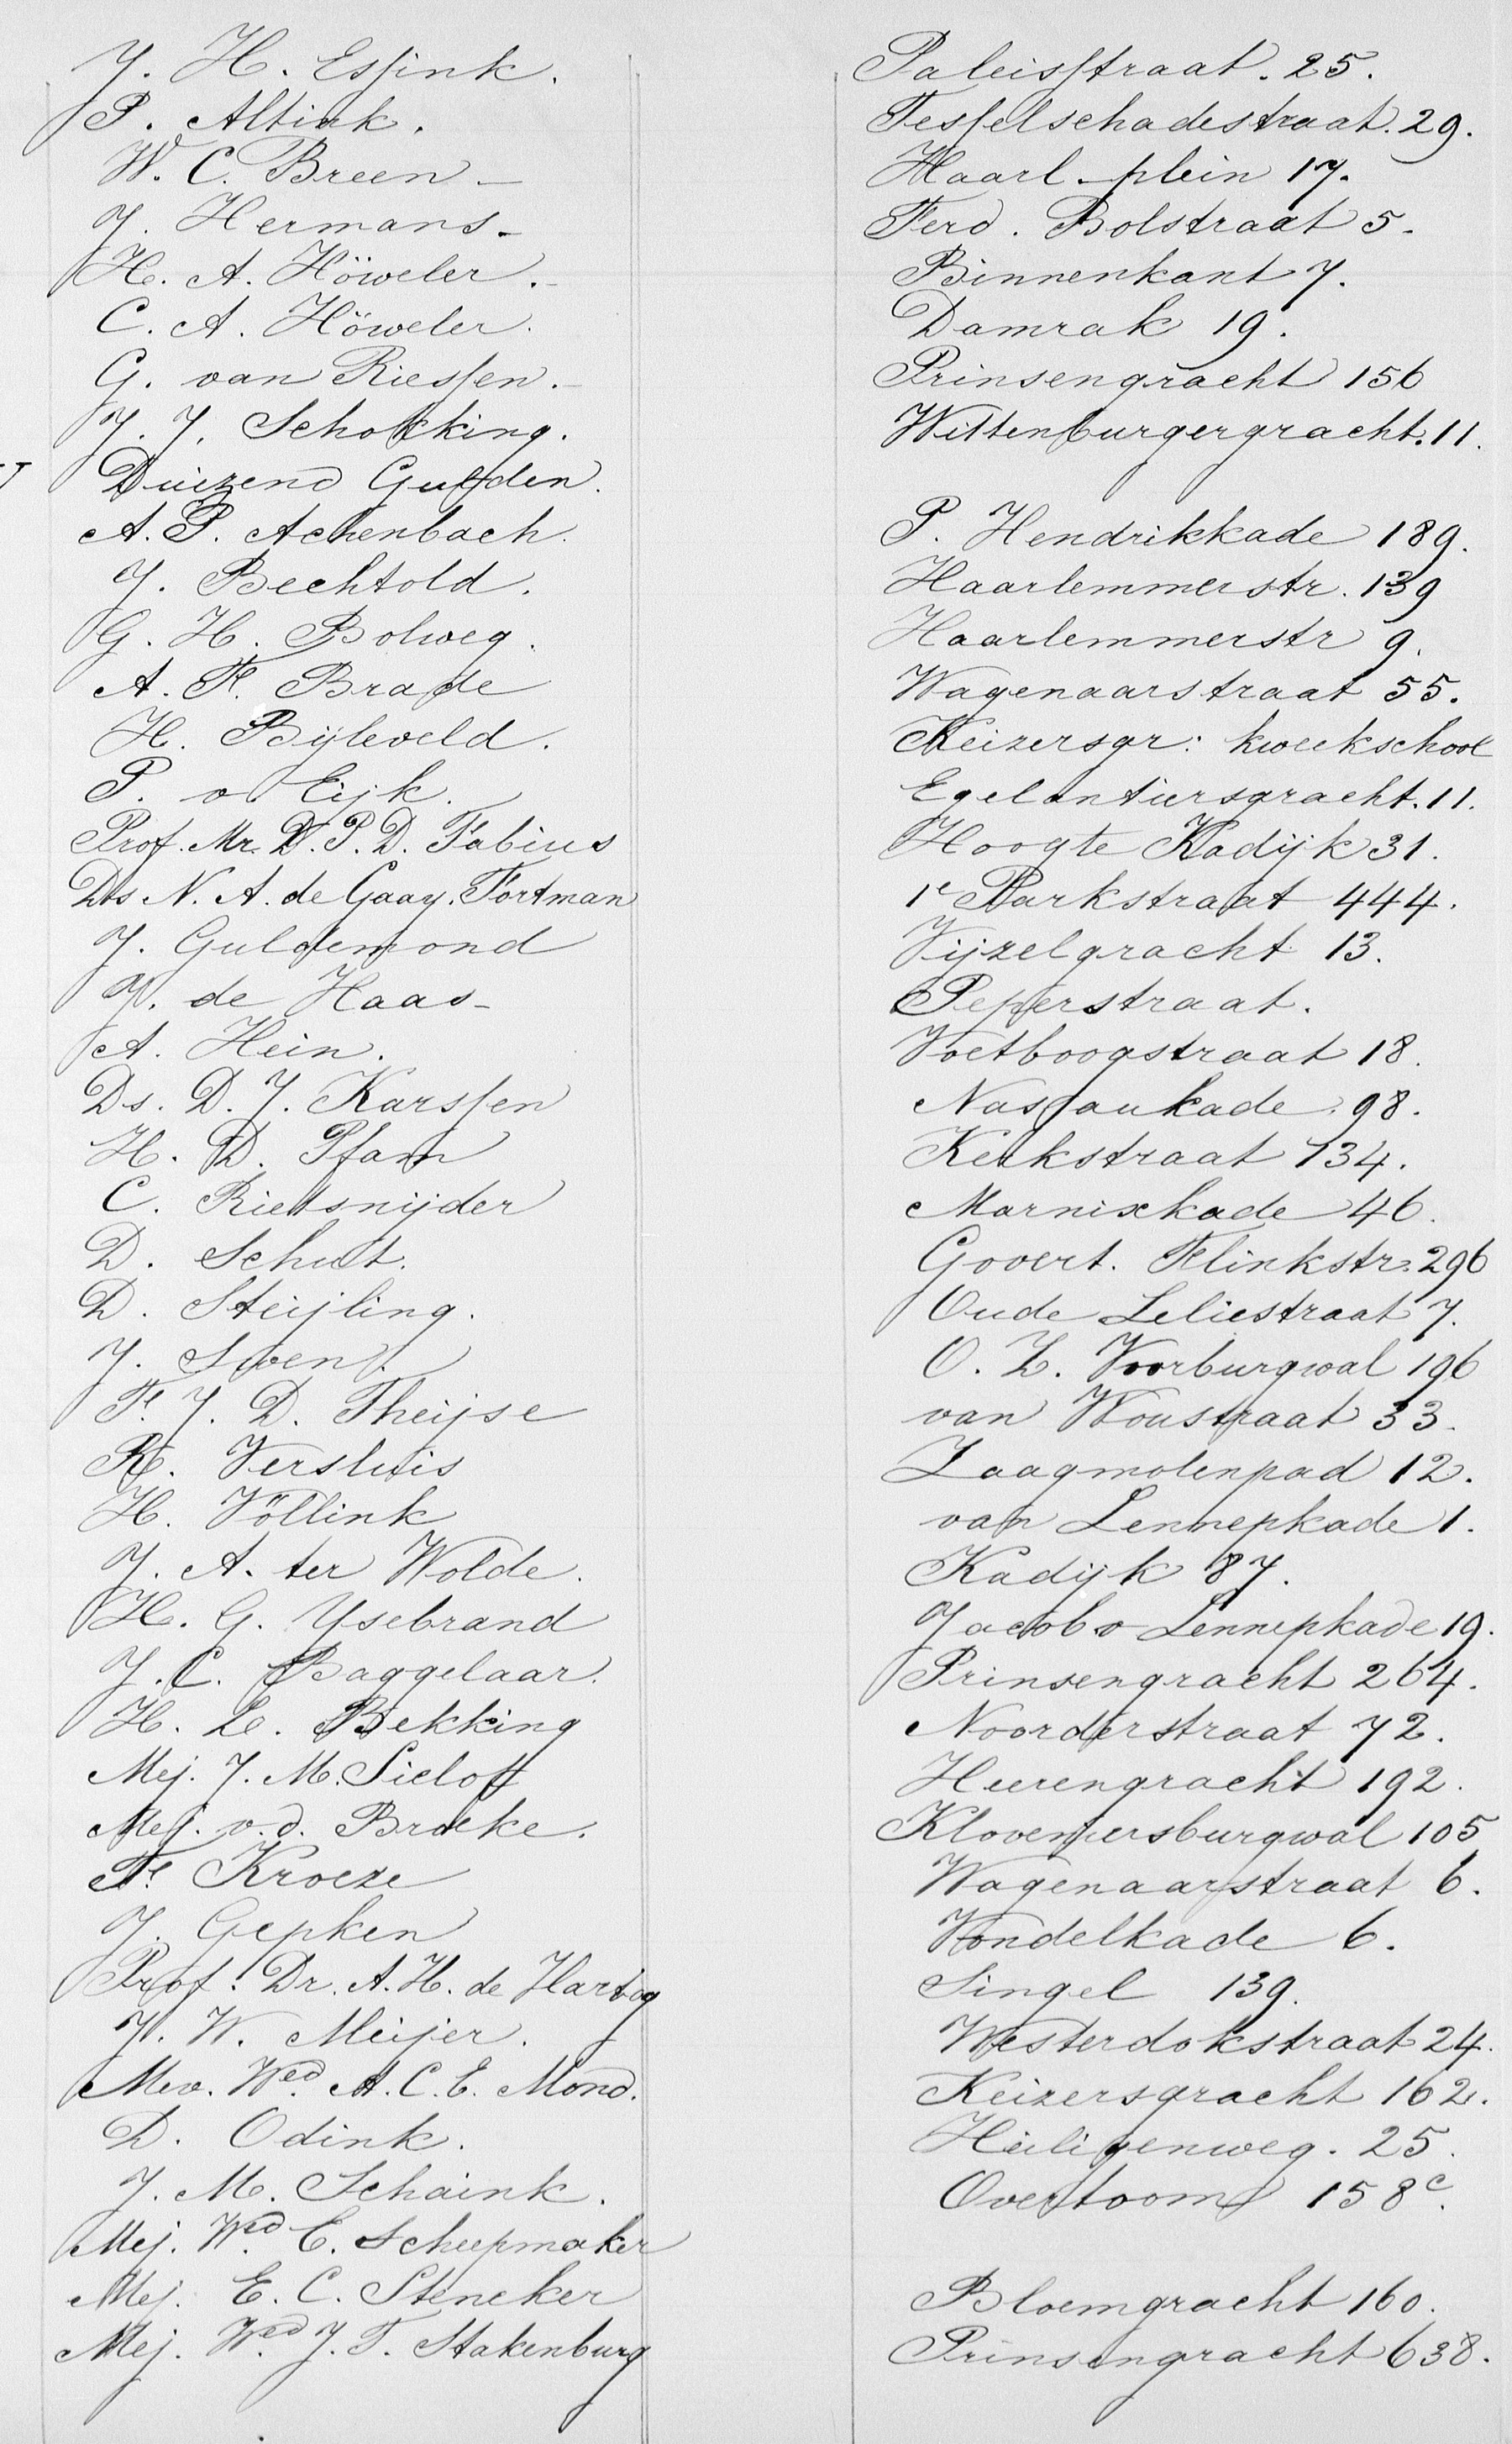 J. H. Essink. Paleisstraat. 25.
P. Altink. Tesselschadestraat. 29.
W. C. Breen - Haarl. plein 17.
J. Hermans - Ferd. Bolstraat 5.
H. A. Höweler. - Binnenkant 7.
C. A. Höweler. Damrak 19.
G. van Riessen. - Prinsengracht 156
J. J. Schokking. Wittenburgergracht. 11.
Duizend Gulden.
A. P. Achenbach. P. Hendrikkade 189.
J. Bechtold. Haarlemmerstr. 139
G. H. Bolweg. Haarlemmerstr 9.
A. F. Brade Wagenaarstraat 55.
H. Bijleveld. Keizersgr: kweekschool
P. v Eijk. Egelantiersgracht. 11.
Prof. Mr. D. P. D. Fabius Hoogte Kadijk 31.
Ds N. A. de Gaay. Fortman 1e Parkstraat 444.
J. Guldemond Vijzelgracht 13.
J. de Haas - Peperstraat.
A. Hein. Voetboogstraat 18.
Ds. D. J. Karssen Nassaukade. 98.
H. D. Pfann Kerkstraat 134.
C. Rietsnijder Marnixkade 46.
D. Schut. Govert. Flinkstr. 296
D. Steijling. Oude Leliestraat 7.
J. Swen. O. Z. Voorburgwal 196
F. J. D. Theijse van Woustraat 33.
R. Versluis Zaagmolenpad 12.
H. Völlink van Lennepkade 1.
J. A. ter Wolde. Kadijk 87.
H. G. Ysebrand Jacob v Lennepkade 19.
J. C. Baggelaar. Prinsengracht 264.
H. Le. Bekking Noorderstraat 72.
Mej. J. M. Sieloff Heerengracht 192.
Mej. v. d. Broeke. Kloveniersburgwal 105
F. Kroeze Wagenaarstraat 6.
J. Gepken Vondelkade 6.
Prof. Dr. A. H. de Hartog Singel 139.
J. W. Meijer. Westerdokstraat 24.
Mev. Wed. A. C. E. Mond. Keizersgracht 162.
D. Odink. Heiligenweg. 25.
J. M. Schaink. Overtoom 158c.
Mej. Wed. E. Scheepmaker
Mej. E. C. Steneker Bloemgracht 160.
Mej. Wed. J. F. Stakenburg Prinsengracht 638.